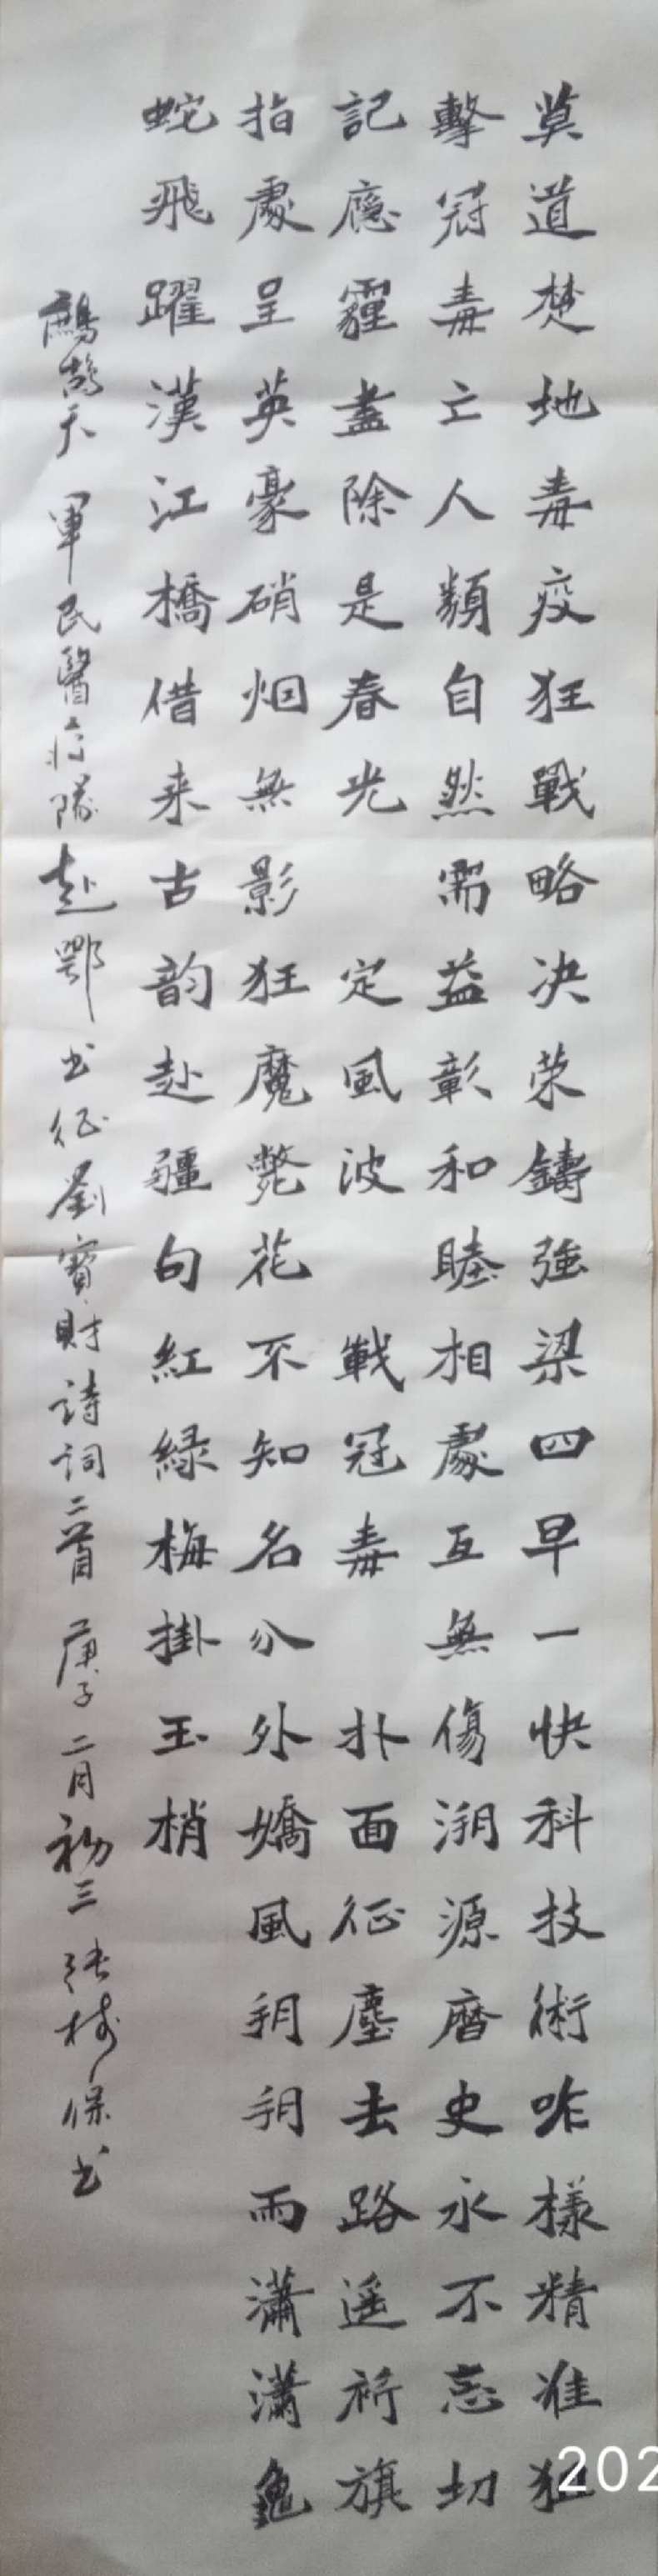 莫道楚地毒疫狂戰略決荣鑄強梁四早一快科技術咋樣精准狙
擊冠毒亡人類自然需益彰和睦相處互無傷溯源曆史永不忘切
記應霾盡除是春光 定風波 戰冠毒 扑面征塵去路遥祈旗
指處呈英豪硝烟無影狂魔斃花不知名分外嬌風朔朔雨瀟瀟龜
蛇飛躍漢江橋借来古韵赴疆句紅緑梅掛玉梢
鷓鴣天 軍民醫疗隊赴鄂 书征劉寳財詩詞二首 庚子二月初三 张树保书
202